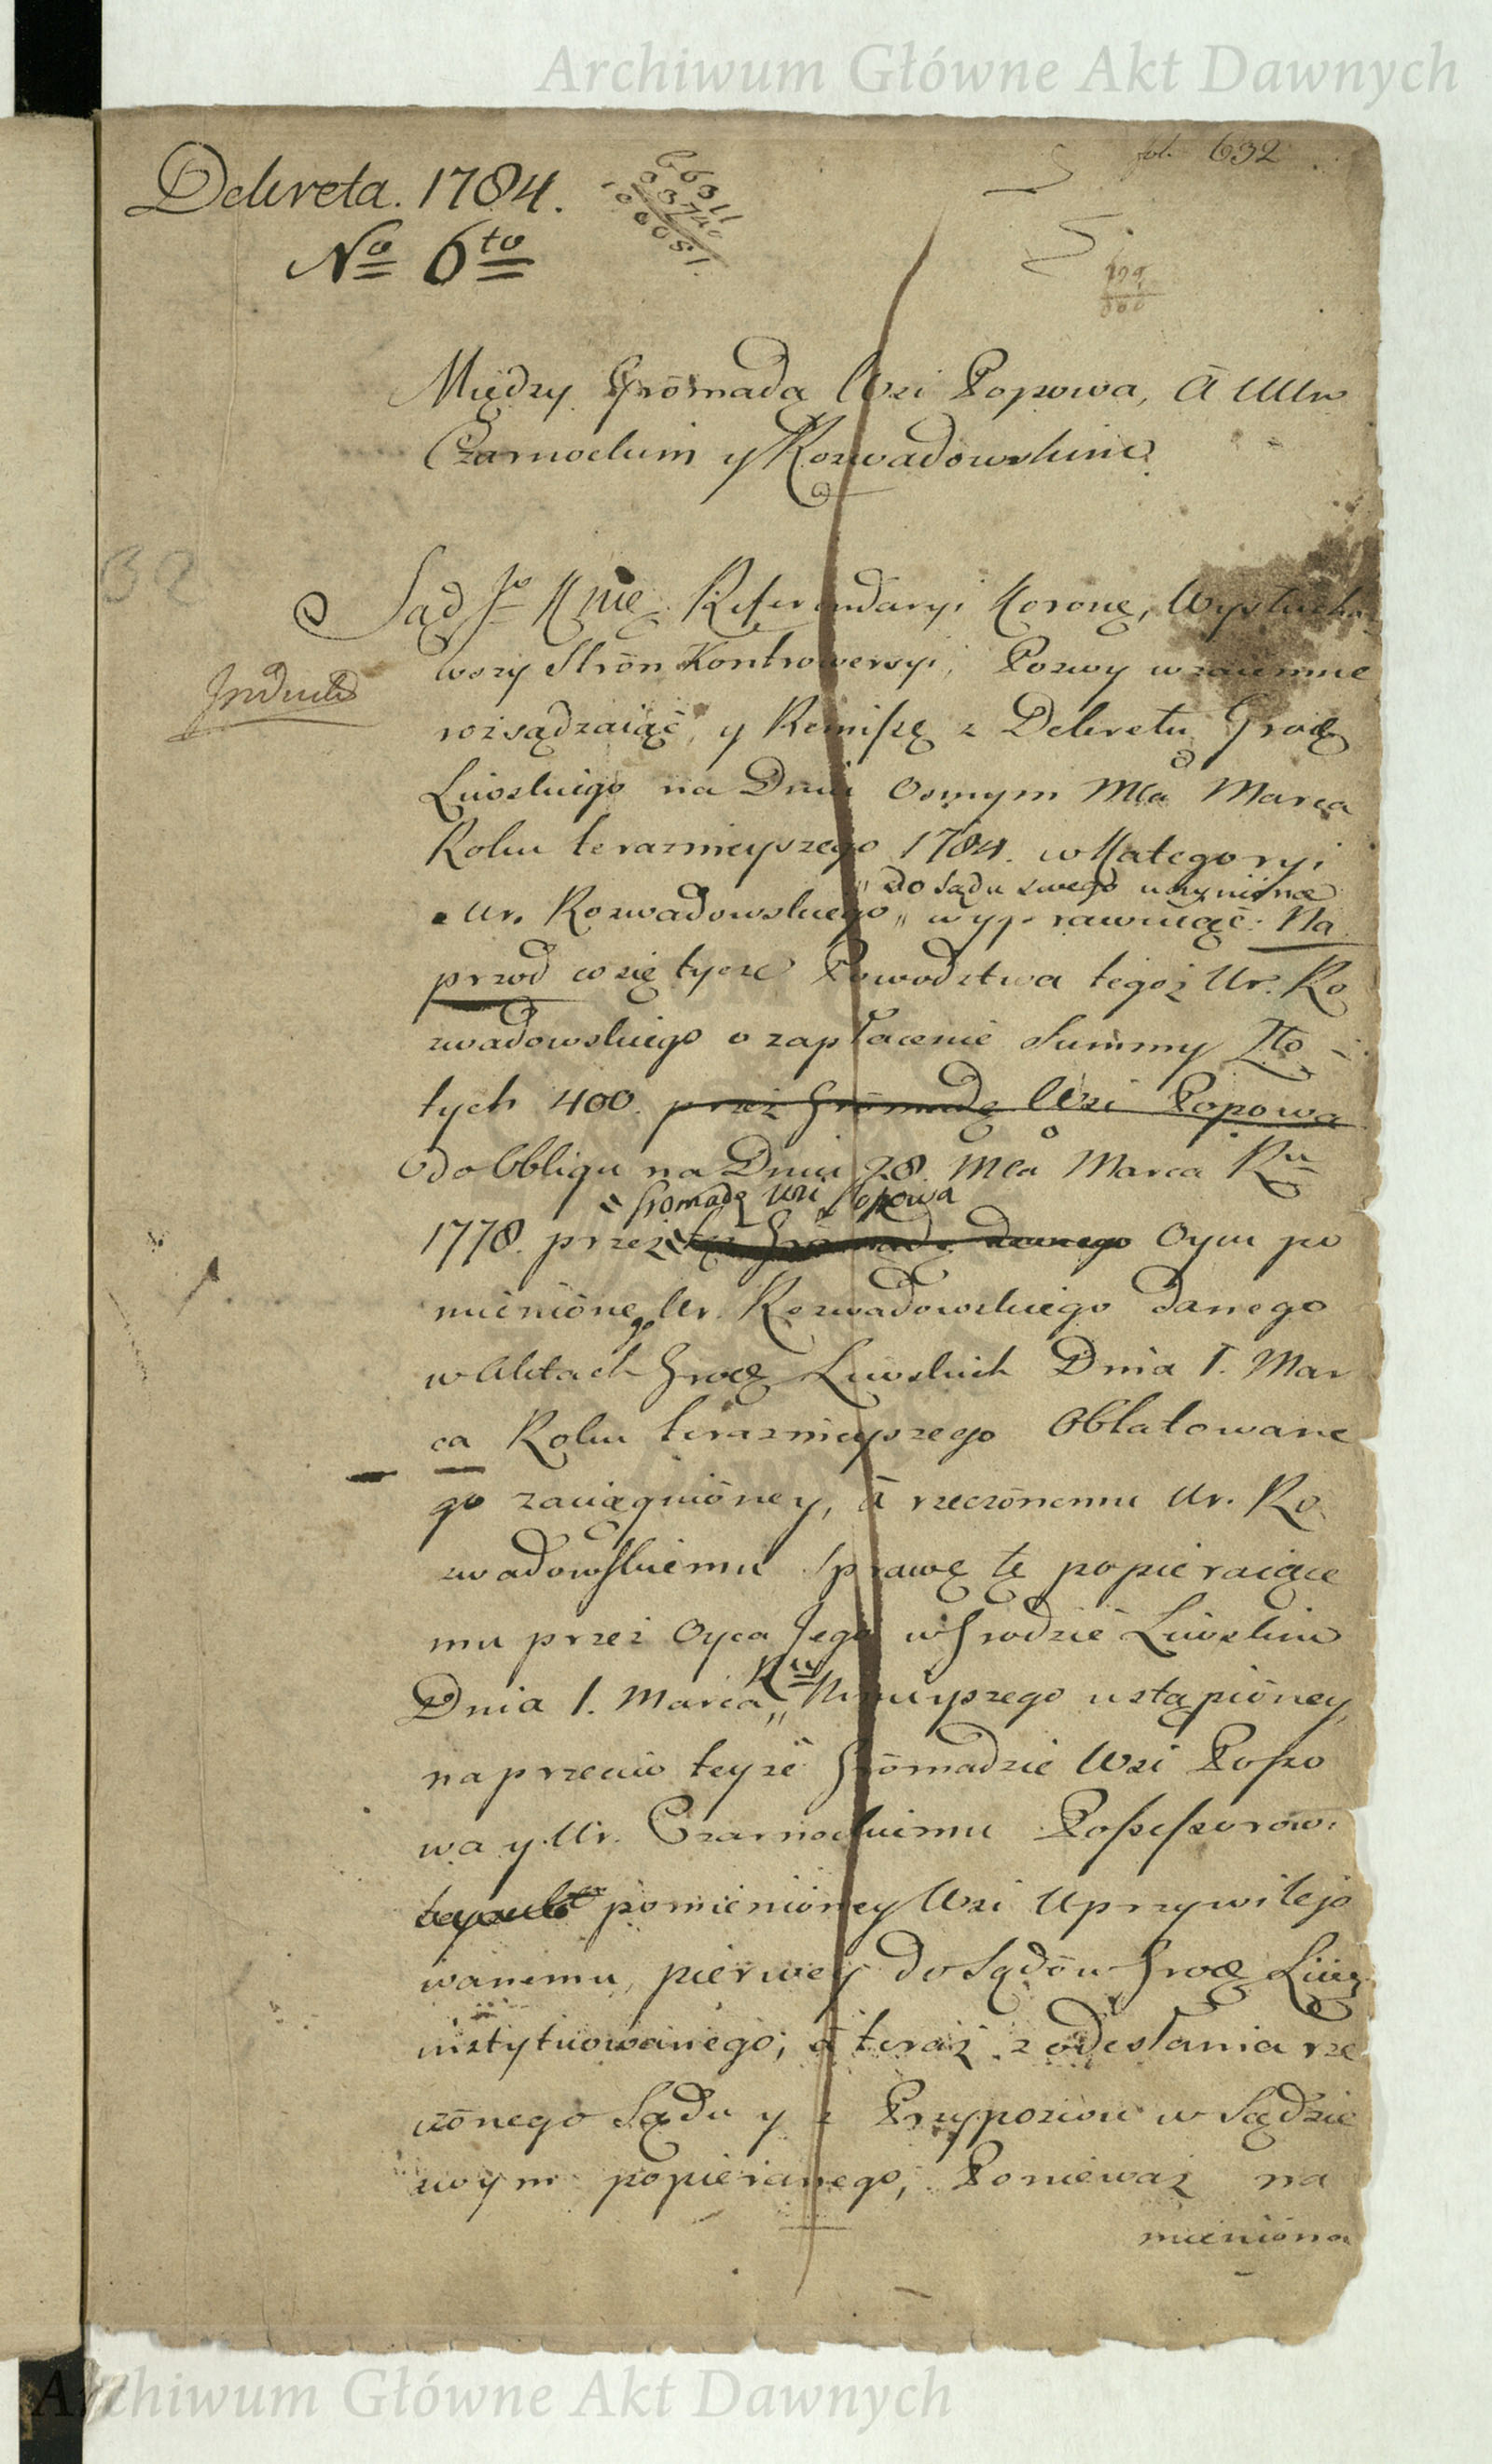 Archiwum Główne Akt Dawnych
fol. 632
Dekreta. 1784.
No 6to
Między Grōmadą Wsi Popowa, á Ur
Czarnockim y Rozwadowskim
32
Sąd Jo K Mci Referendaryi Koroney, Wysłucha
wszy Strōn Kontrowersyi, Pozwy wzaiemne
Indukta
rozsądzaiąc, y Remissę z Dekretu Grodz
Liwskiego na Dniu Osmym Mca Marca
Roku terazmieyszego 1784. w Kategoryi
„ do Sądu swego uczynioną
Ur. Rozwadowskiego „ wyprawuiąc: Na
przod co się tycze Powodztwa tegoż Ur. Ro
zwadowskiego o zapłacenie Summy Zło
tych 400. przez Grōmadę Wsi Popowa
do Obligu na Dniu 28. Mca Marca Ru
Gromadę Wsi Popowa
1778. przez tęż Grōmadę danego Oycu po
mieniōnego Ur. Rozwadowskiego danego
w Aktach Grodz Liwskich Dnia 1. Mar
ca Roku terazmieyszego Oblatowane
go zaciągniōney, á rzeczōnemu Ur. Ro
zwadowskiemu sprawę tę popieraiące
mu przez Oyca Jego w Grodzie Liwskim
Dnia 1. Marca „ Ru Ninieyszego ustąpiōney,
naprzeciw teyże Grōmadzie Wsi Popo
wa y Ur. Czarnockiemu Possessorowi
pomieniōney Wsi Uprzywilejo
wanemu, pierwey do Sądōw Grodz Liwz
instytuowanego; á teraz z odesłania rze
czōnego Sądu y z Przypozwu w Sądzie
swym popieranego, Ponieważ na
mieniōna
Archiwum Główne Akt Dawnych